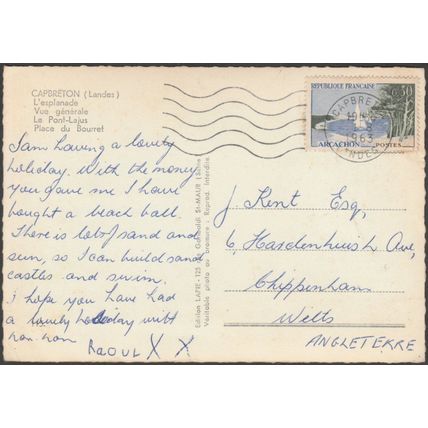 CAPBRETON (Landes)
L'esplanade
Vue générale
Le Pont-Lajus
Place du Bourret
I am having a lovely
holiday. With the money
you gave me I have
bought a beach ball.
There is lot of sand and
sun, so I can build sand
castles and swim.
I hope you have had
a lovely holiday with
RAOUL X X
Edition LAPIE - 125 de Garibaldi St-MAUR (Seine)
Véritable photo au bromure - Reprod. Interdite
REPUBLIQUE FRANÇAISE
0,30
ARCACHON
POSTES
CAPBRETON
1963
LANDES
J. Kent Esq,
6, Hardenhuish Ave,
Chippenham
Wilts
ANGLETERRE